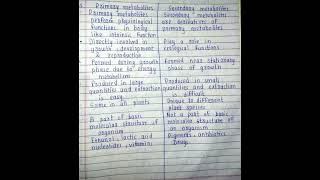 Primary metabolites Secondary metabolites
Primary metabolites Secondary metabolites
perform physiological are derivatives of
functions in body primary metabolites
like intrinsic function
Directly involved in Play a role in
growth, development ecological functions
& reproduction
Formed during growth Formed near stationary
phase due to energy phase of growth
metabolism
Produced in large Produced in small
quantities and extraction quantities and extraction
is easy is difficult
Same in all plants Unique to different
plant species
A part of basic Not a part of basic
molecular structure of molecular structure of
organism an organism
lactic acid Pigments, antibiotics
nucleotides, vitamins Drugs